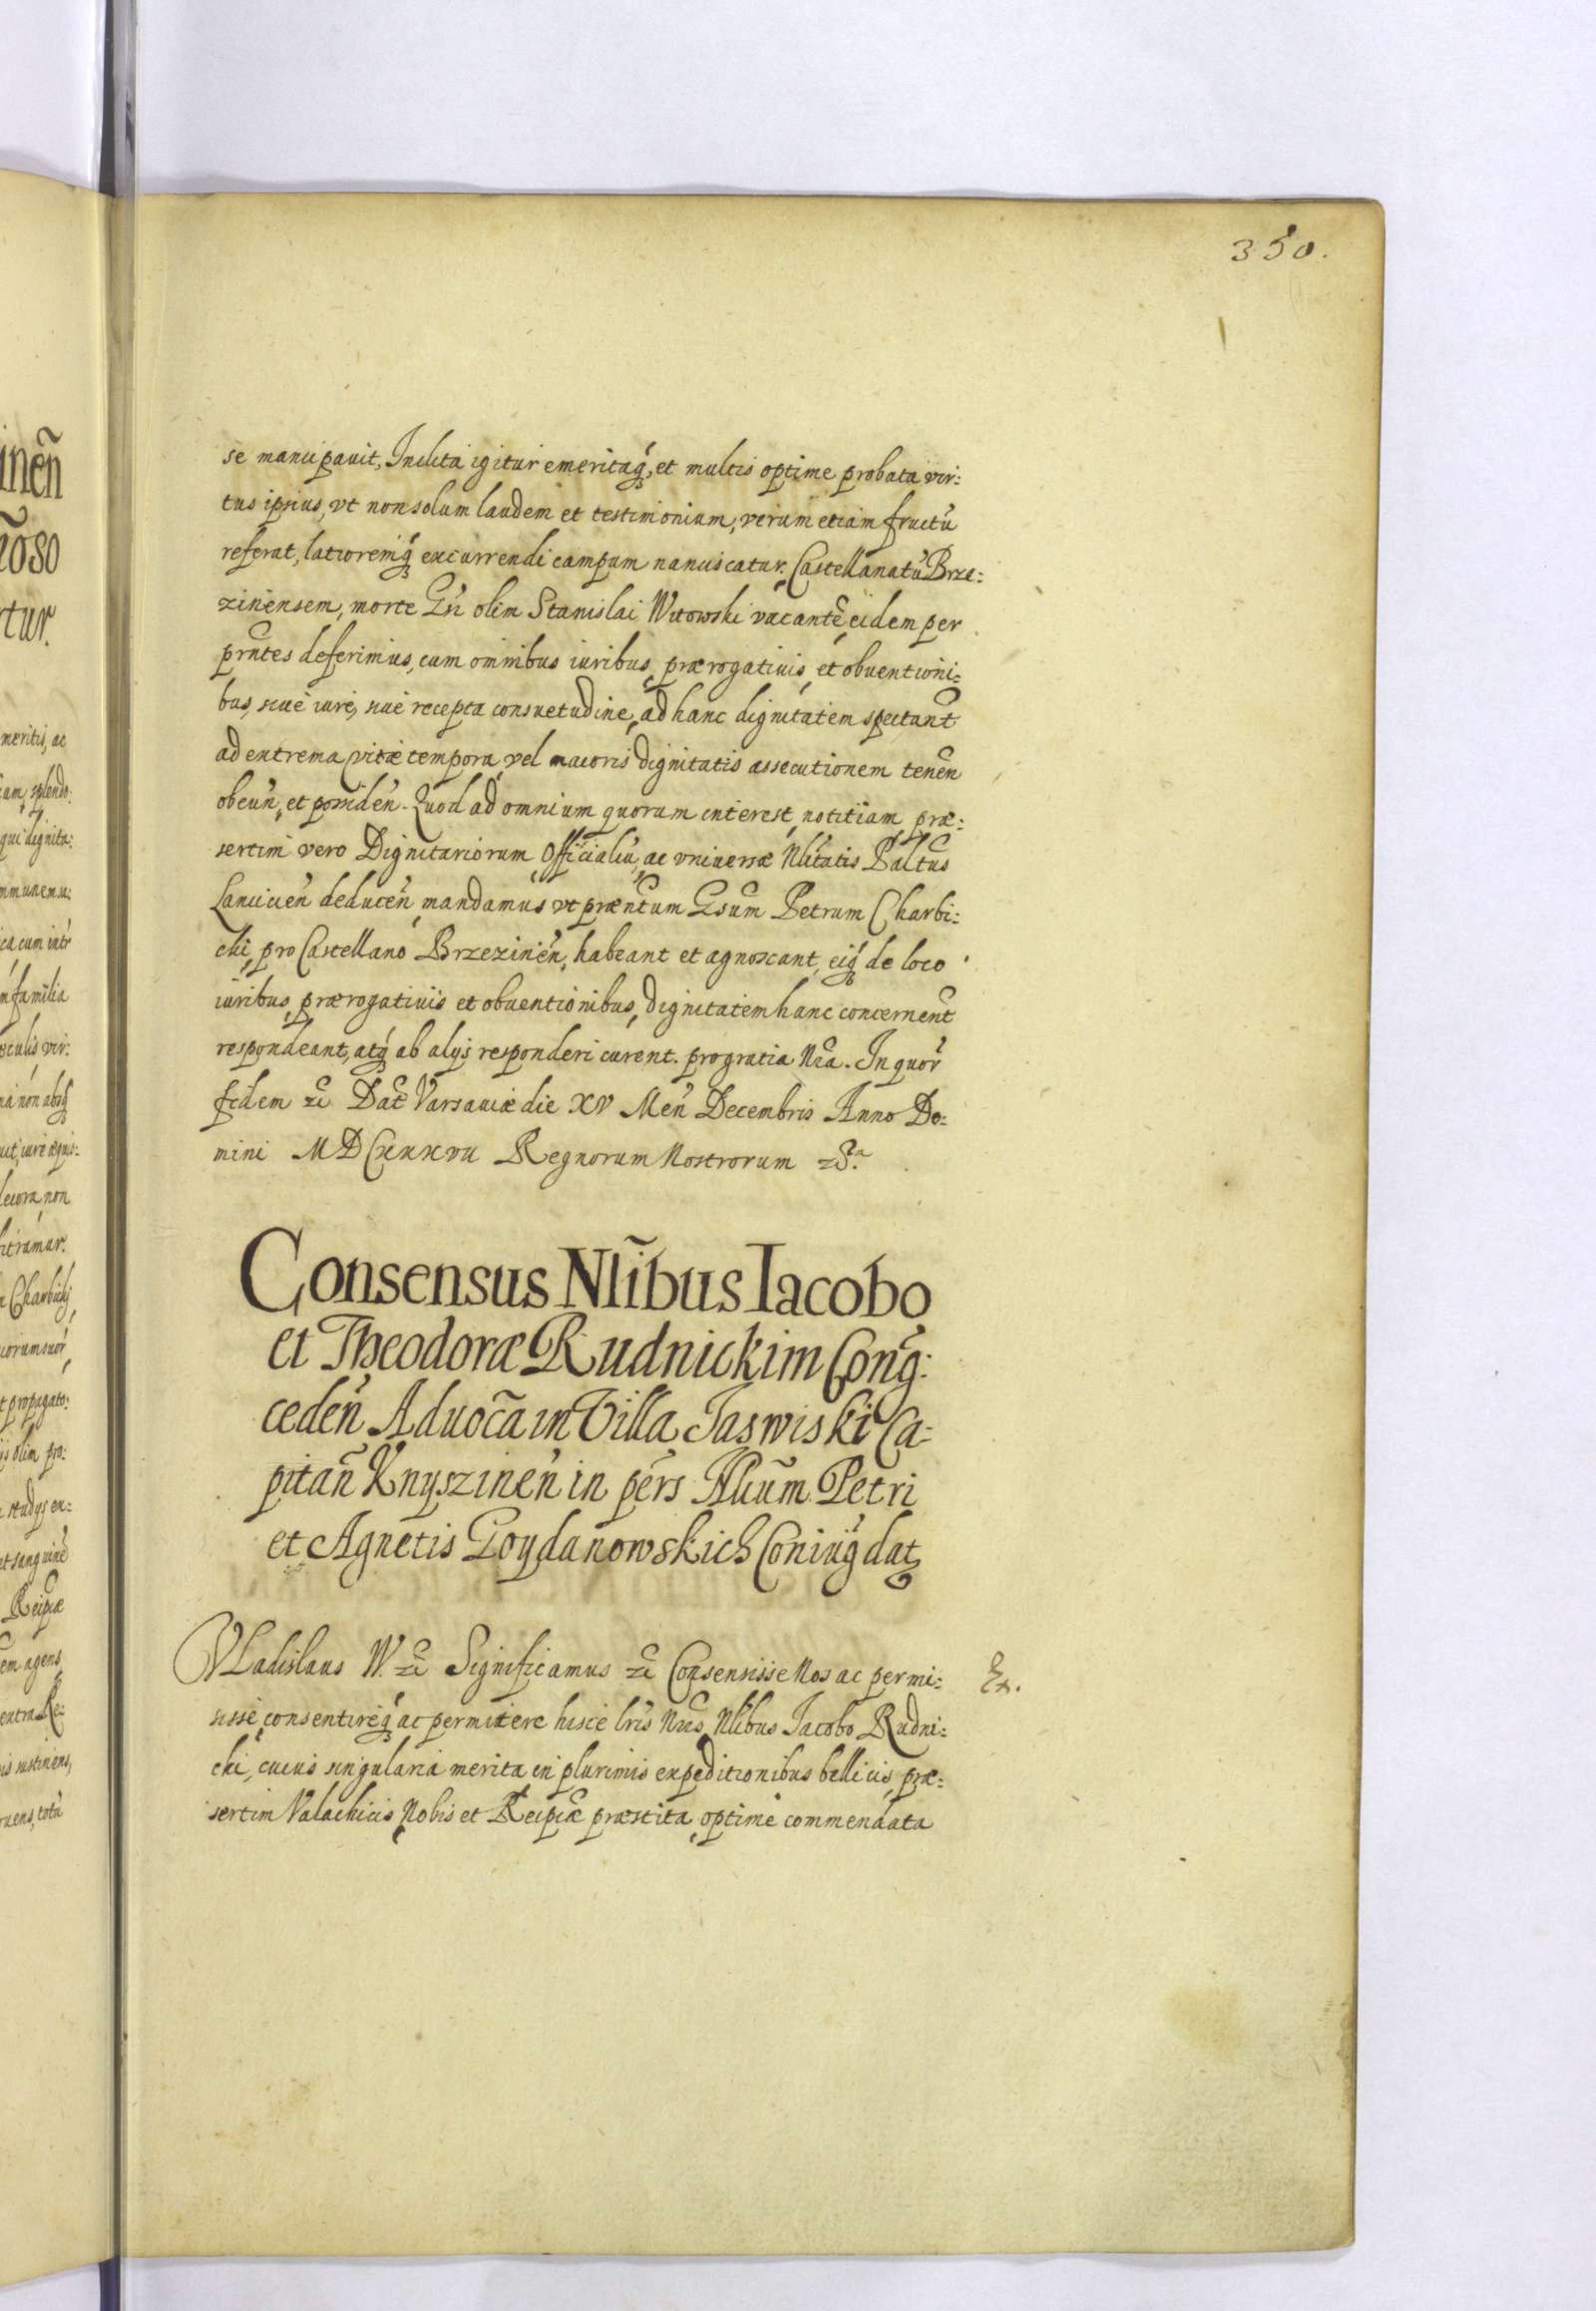 350.
se mancipauit, Inclita igitur emeritaq́, et multis optime probata vir:
tus ipsius, vt non solum laudem et testimonium, verum etiam fructū
referat, latioremq́ excurrendi campum nanciscatur. Castellanatū Brze:
zinensem, morte Gn̄ olim Stanislai Witowski vacantē, eidem per
prn̄tes deferimus, cum omnibus iuribus, prærogatiuis, et obuentioni:
bus, siue iure, siue recepta consuetudine, ad hanc dignitatem spectant̃
ad extrema vitæ tempora, vel maioris dignitatis assecutionem tenen̄
obeun̄, et possiden̄. Quod ad omnium quorum interest, notitiam præ:
sertim vero Dignitariorum, Officialiū, ac vniuersæ Nlitatis Paltus
Lanicien̄ deducen̄, mandamus vt præn̄tum Gsum Petrum Charbi:
cki, pro Castellano Brzezinien̄, habeant et agnoscant, eiq́ de loco
iuribus, prærogatiuis et obuentionibus, dignitatem hanc concernent̃
respondeant, atq́ ab alijs responderi curent. pro gratia Nr̃a. In quor̃
fidem zc̃ Dat̃ Varsauiæ die XV Men̄ Decembris Anno Do:
mini MDCxxxvii Regnorum Nostrorum
Consensus Nl̃ibus Iacobo
et Theodoræ Rudnickim Cong̃:
ceden̄ Aduoc̃a in Villa Jaswiski Ca:
pitan̄ Knyszinen̄ in pers Nlium Petri
et Agnetis Goydanowskich Coniug̃ dat
VLadislaus W. zc̃ Significamus zc̃ Consensisse Nos ac permi: Ex.
sisse, consentireq́ ac permittere hisce lris Nris, Nlibus Jacobo Rudni:
cki, cuius singularia merita in plurimis expeditionibus bellicis, præ:
sertim Valachicis Nobis et Reipcæ præstita, optime commendata